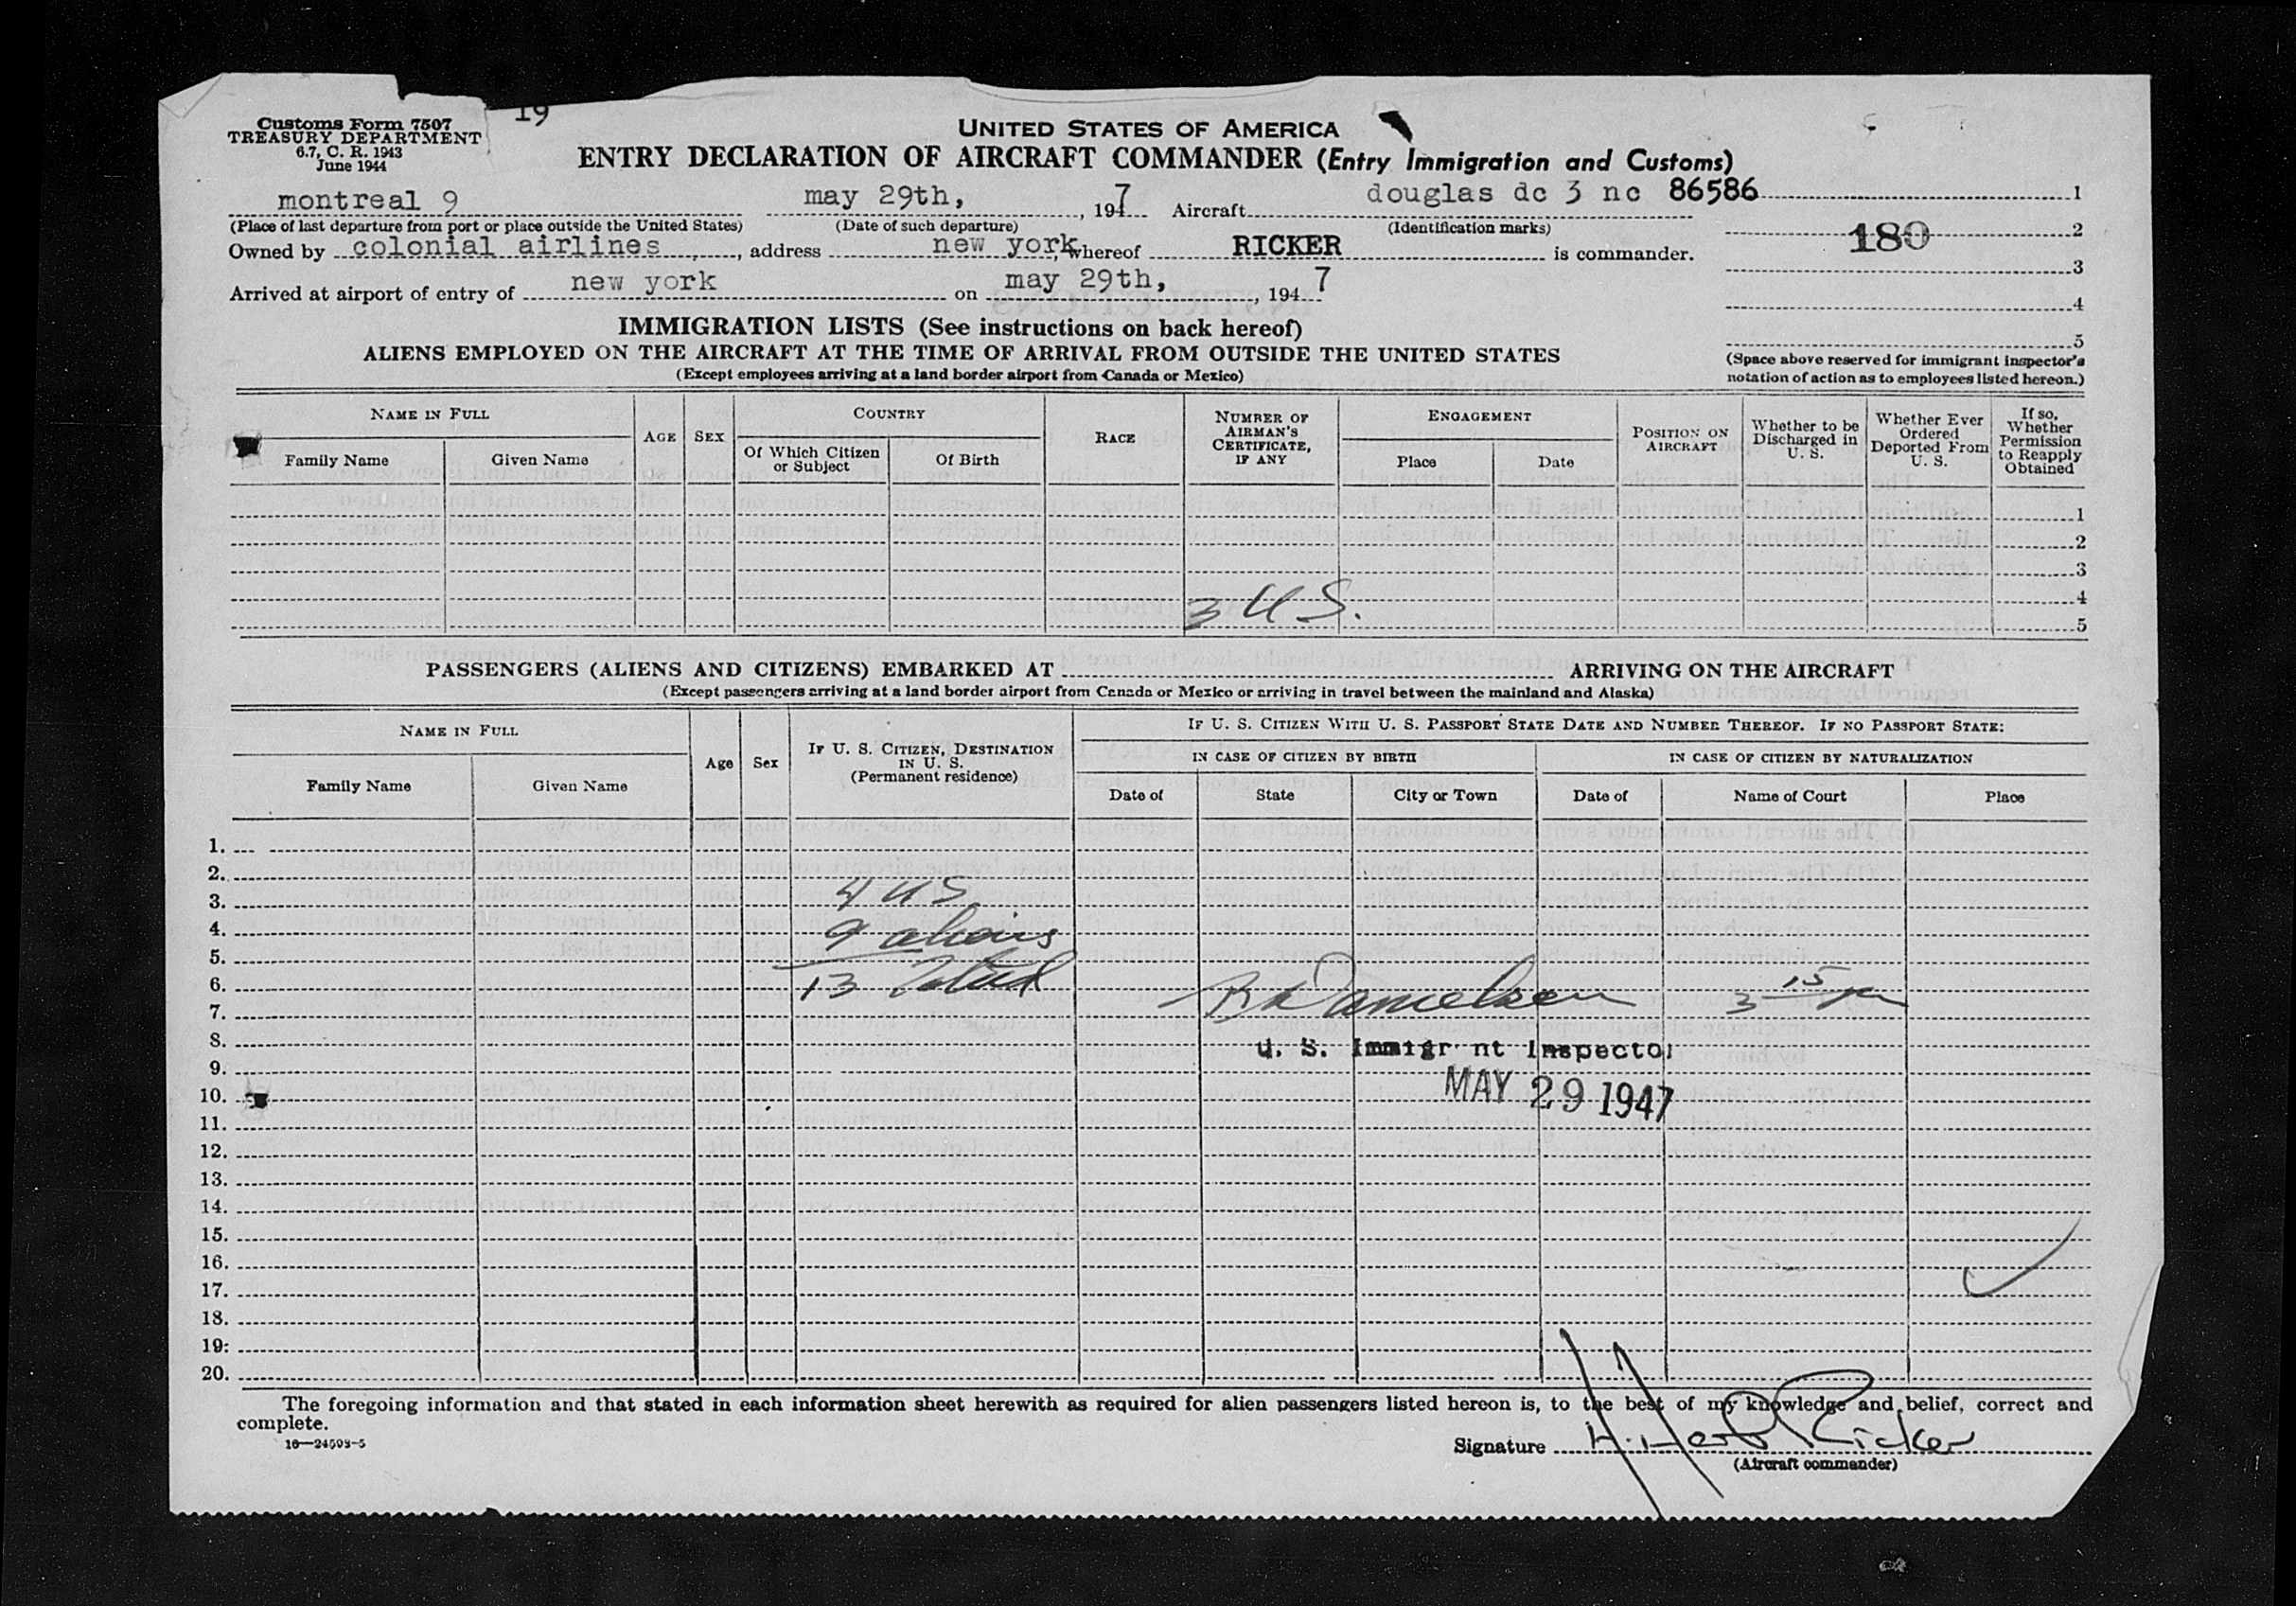 19
Customs Form 7507
TREASURY DEPARTMENT
6.7, C. R. 1943
June 1944
UNITED STATES OF AMERICA
ENTRY DECLARATION OF AIRCRAFT COMMANDER (Entry Immigration and Customs)
montreal 9 may 29th, , 1947 Aircraft douglas dc 3 nc 86586 1
(Place of last departure from port or place outside the United States) (Date of such departure) (Identification marks)
180 2
Owned by colonial airlines , , address new york , whereof RICKER is commander.
3
Arrived at airport of entry of new york on may 29th, , 1947
4
IMMIGRATION LISTS (See instructions on back hereof)
5
ALIENS EMPLOYED ON THE AIRCRAFT AT THE TIME OF ARRIVAL FROM OUTSIDE THE UNITED STATES
(Except employees arriving at a land border airport from Canada or Mexico)
(Space above reserved for immigrant inspector's
notation of action as to employees listed hereon.)
NAME IN FULL
Family Name Given Name
AGE SEX
COUNTRY
Of Which Citizen
or Subject
Of Birth
RACE
NUMBER OF
AIRMAN'S
CERTIFICATE,
IF ANY
ENGAGEMENT
Place Date
POSITION ON
AIRCRAFT
Whether to be
Discharged in
U. S.
Whether Ever
Ordered
Deported From
U. S.
If so,
Whether
Permission
to Reapply
Obtained
1
2
3
3 US. 4
5
PASSENGERS (ALIENS AND CITIZENS) EMBARKED AT ARRIVING ON THE AIRCRAFT
(Except passengers arriving at a land border airport from Canada or Mexico or arriving in travel between the mainland and Alaska)
NAME IN FULL
Family Name Given Name
Age Sex
IF U. S. CITIZEN, DESTINATION
IN U. S.
(Permanent residence)
IF U. S. CITIZEN WITH U. S. PASSPORT STATE DATE AND NUMBER THEREOF. IF NO PASSPORT STATE:
IN CASE OF CITIZEN BY BIRTH IN CASE OF CITIZEN BY NATURALIZATION
Date of State City or Town Date of Name of Court Place
1.
2.
3. 4 US
4. 9 aliens
5.
6. 13 Total
7. Danielsen 3 15
8. U. S. Immigr nt Inspector
9.
10. MAY 29 1947
11.
12.
13.
14.
15.
16.
17.
18.
19.
20.
The foregoing information and that stated in each information sheet herewith as required for alien passengers listed hereon is, to the best of my knowledge and belief, correct and
complete.
16—24598-5
Signature H. Herb Ricker
(Aircraft commander)